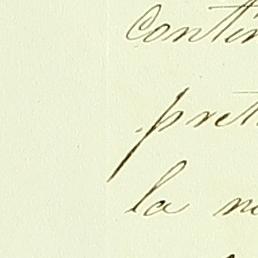 contin
pret
la n